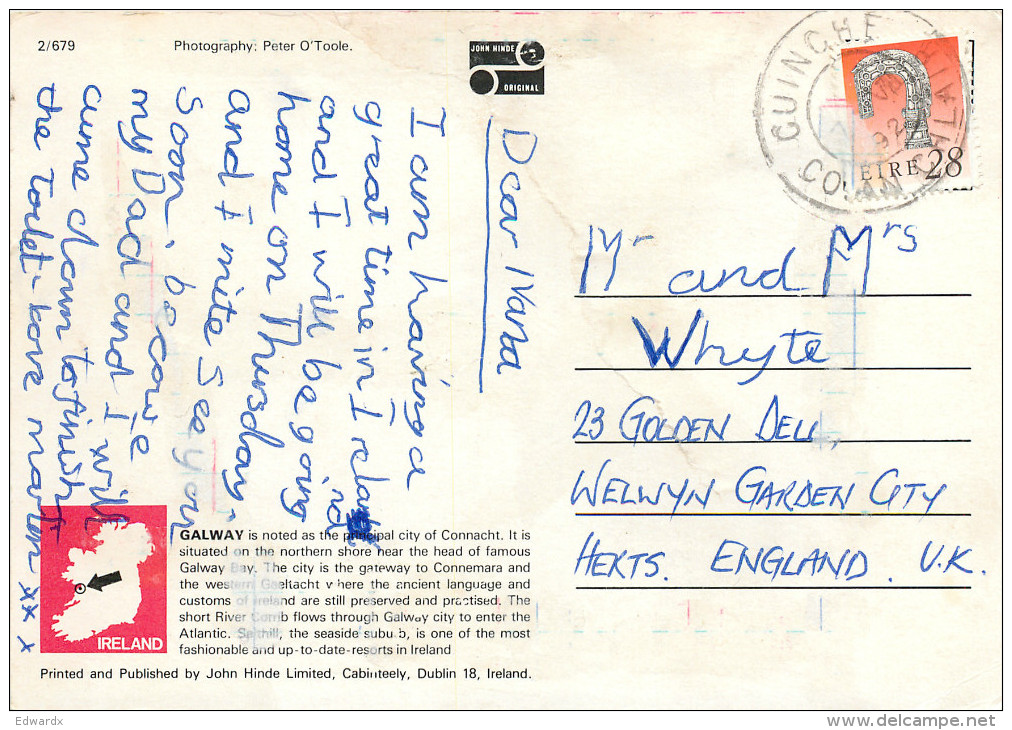 2/679
Photography: Peter O'Toole.
JOHN HINDE
ORIGINAL
Dear Nana
I am having a
great time in Ireland
and I will be going
home on Thursday
and I mite see you
Soon. becowe
my Dad and I will
the toilet
xx x
GALWAY is noted as the principal city of Connacht. It is
situated on the northern shore near the head of famous
Galway Bay. The city is the gateway to Connemara and
the western Gaeltacht where the ancient language and
customs of Ireland are still preserved and practised. The
short River Corrib flows through Galway city to enter the
Atlantic. Salthill, the seaside suburb, is one of the most
fashionable and up-to-date-resorts in Ireland
IRELAND
Printed and Published by John Hinde Limited, Cabinteely, Dublin 18, Ireland.
CUINCHE
CO. AN CHLÁIR
92
EIRE 28
Mr and Mrs
Whyte
23 GOLDEN DELL,
WELWYN GARDEN CITY
HERTS. ENGLAND. U.K.
Edwardx
www.delcampe.net